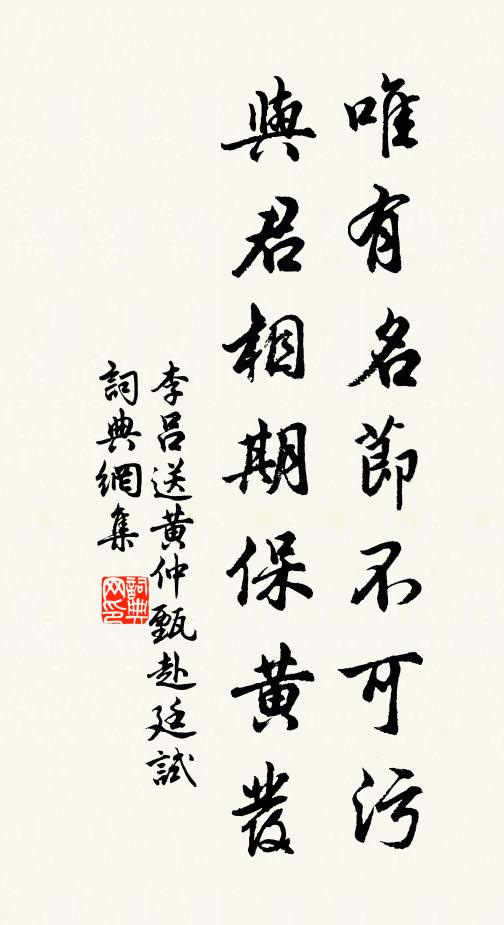 唯有名節不可污
與君相期保黄發
李呂送黄仲甄赴廷試
詞典網集
詞典網印